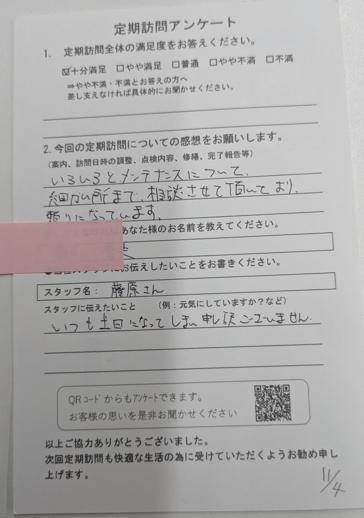 定期訪問アンケート
1. 定期訪問全体の満足度をお答えください。
☑十分満足 □やや満足 □普通 □やや不満 □不満
⇒やや不満・不満とお答えの方へ
差し支えなければ具体的にお聞かせください。
2. 今回の定期訪問についての感想をお願いします。
(案内、訪問日時の調整、点検内容、修繕、完了報告等)
いろいろとメンテナンスについて、
細かい所まで、相談させて頂いており、
頼りになっています。
あなた様のお名前を教えてください。
にお伝えしたいことをお書きください。
スタッフ名: 藤原さん
スタッフに伝えたいこと (例:元気にしていますか?など)
いつも土日になってしまい申し訳ございません。
QRコードからもアンケートできます。
お客様の思いを是非お聞かせください
以上ご協力ありがとうございました。
次回定期訪問も快適な生活の為に受けていただくようお勧め申し
上げます。
11/4